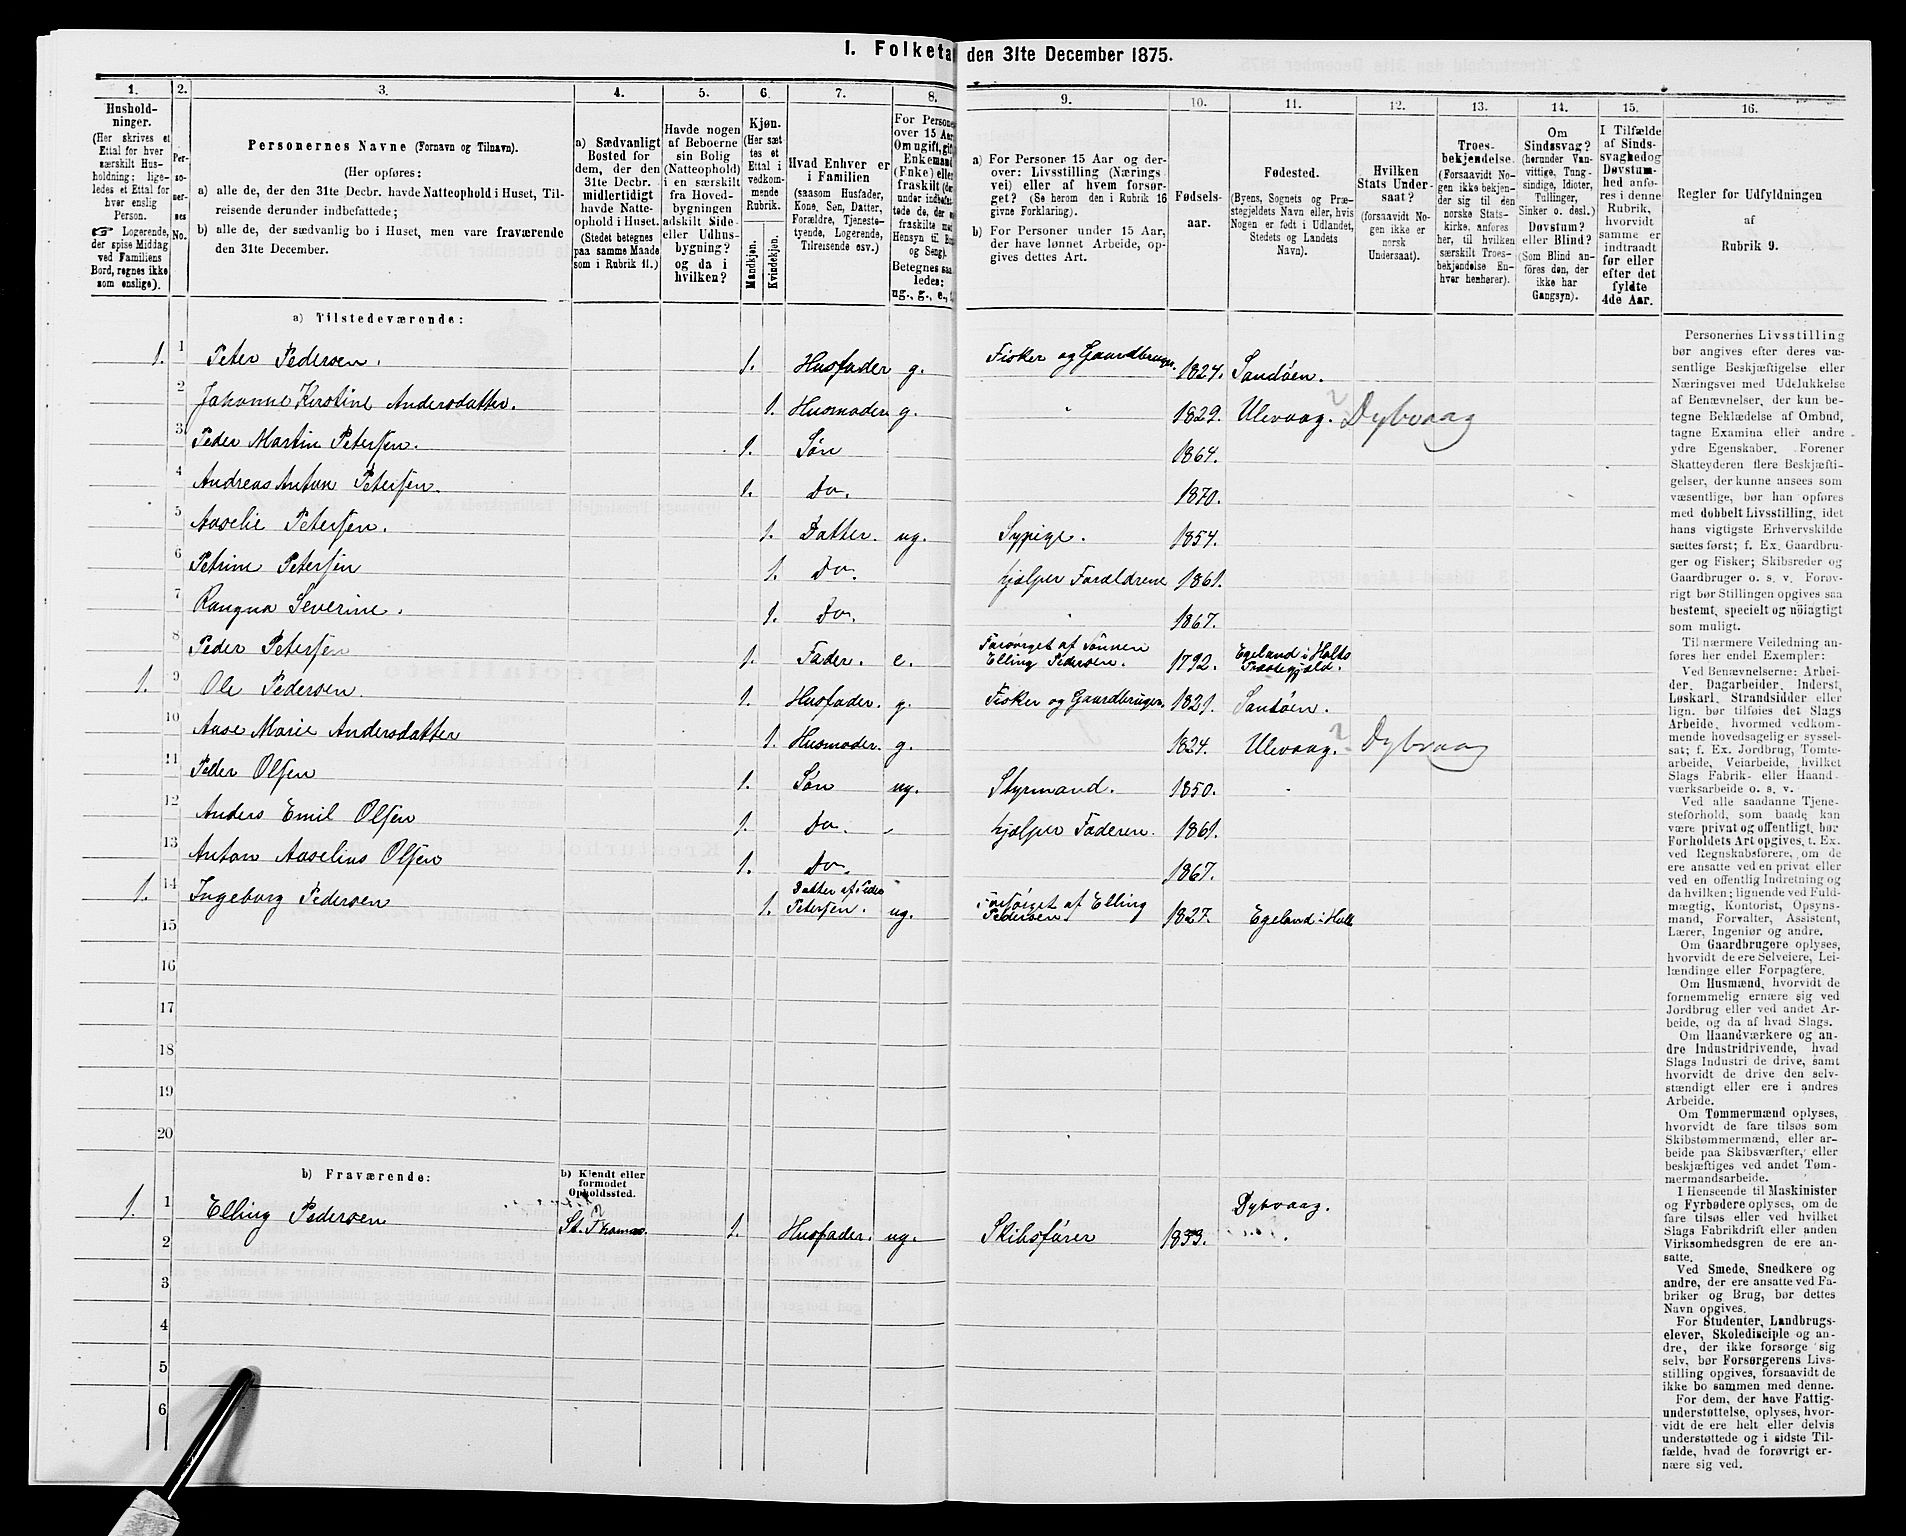 1. Folketa den 31te December 1875.
1.
Hushold-
ninger.
(Her skrives et
Ettal for hver
særskilt Hus-
holdning; lige-
ledes et Ettal for
hver enslig
Person.
☞ Logerende,
der spise Middag
ved Familiens
Bord, regnes ikke
som enslige).
2.
Per-
so-
ner-
nes
No.
3.
Personernes Navne (Fornavn og Tilnavn).
(Her opføres:
a) alle de, der den 31te Decbr. havde Natteophold i Huset, Til-
reisende derunder indbefattede;
b) alle de, der sædvanlig bo i Huset, men vare fraværende
den 31te December.
4.
a) Sædvanligt
Bosted for
dem, der den
31te Decbr.
midlertidigt
havde Natte-
ophold i Huset.
(Stedet betegnes
paa samme Maade
som i Rubrik 11.)
5.
Havde nogen
af Beboerne
sin Bolig
(Natteophold)
i en særskilt
fra Hoved-
bygningen
adskilt Side-
eller Udhus-
bygning?
og da i
hvilken?
6.
Kjøn.
(Her sæt-
tes et
Ettal i
vedkom-
mende
Rubrik.
Mandkjøn.
Kvindekjøn.
7.
Hvad Enhver er
i Familien
(saasom Husfader,
Kone, Søn, Datter,
Forældre, Tjeneste-
tyende, Logerende,
Tilreisende osv.)
8.
For Persone
over 15 Aar
Om ugift, gift
Enkemand
(Enke) eller
fraskilt (der-
under indbefat-
tede de, der er
fraskilte med
Hensyn til Bo
og Seng).
Betegnes saa-
ledes:
ug., g., e.,
9.
a) For Personer 15 Aar og der-
over: Livsstilling (Nærings-
vei) eller af hvem forsør-
get? (Se herom den i Rubrik 16
givne Forklaring).
b) For Personer under 15 Aar,
der have lønnet Arbeide, op-
gives dettes Art.
10.
Fødsels-
aar.
11.
Fødested.
(Byens, Sognets og Præ-
stegjeldets Navn eller, hvis
Nogen er født i Udlandet,
Stedets og Landets
Navn).
12.
Hvilken
Stats Under-
saat?
(forsaavidt No-
gen ikke er
norsk
Undersaat).
13.
Troes-
bekjendelse.
(Forsaavidt No-
gen ikke bekjen-
der sig til den
norske Stats-
kirke, anføres
her, til hvilken
særskilt Troes-
bekjendelse En-
hver henhører).
14.
Om
Sindssvag?
(herunder Van-
vittige, Tung-
sindige, Idioter,
Tullinger,
Sinker o. desl.)
Døvstum?
eller Blind?
(Som Blind an-
føres den, der
ikke har
Gangsyn).
15.
I Tilfælde
af Sinds-
svaghed og
Døvstum-
hed anfø-
res i denne
Rubrik,
hvorvidt
samme er
indtraadt
før eller
efter det
fyldte
4de Aar.
16.
Regler for Udfyldningen
af
Rubrik 9.
a) Tilstedeværende:
1. 1 Peter Pedersen. 1. Husfader g. Fisker og Gaardbruger. 1824. Sandøen.
2 Johanne Kirstine Andersdatter. 1. Husmoder g. " 1829. Ulevaag. ? Dybvaag
3 Peder Martin Petersen. 1. Søn 1864.
4 Andreas Anton Petersen. 1. Do. 1870.
5 Aaselie Petersen. 1. Datter. ug. Sypige. 1854.
6 Petrine Petersen 1. Do. hjælper Forældrene 1861.
7 Rangna Severine. 1. Do. " 1867.
8 Peder Petersen 1. Fader. e. Forsørget af Sønnen Elling Pedersen. 1792. Egeland i Holts Præstegjeld.
1. 9 Ole Pedersen. 1. Husfader. g. Fisker og Gaardbruger. 1821. Sandøen.
10 Aase Marie Andersdatter 1. Husmoder. g. 1824. Ulevaag. ? Dybvaag
11 Peder Olsen 1. Søn ug. Styrmand. 1850. "
12 Anders Emil Olsen 1. Do. " hjælper Faderen. 1861.
13 Anton Aaselius Olsen 1. Do. 1867.
1. 14 Ingeborg Pedersen 1. Datter af Peder Petersen. ug. Forsørget af Elling Pedersen. 1827. Egeland i Holt
15
16
17
18
19
20
b) Fraværende:
b) Kjendt eller
formodet
Opholdssted.
1. 1 Elling Pedersen St. Thomas. ? 1. Husfader. ug. Skibsfører 1833. Dybvaag.
2
3
4
5
6
Personernes Livsstilling
bør angives efter deres væ-
sentlige Beskjæftigelse eller
Næringsvei med Udelukkelse
af Benævnelser, der kun be-
tegne Beklædelse af Ombud,
tagne Examina eller andre
ydre Egenskaber. Forener
Skatteyderen flere Beskjæfti-
gelser, der kunne ansees som
væsentlige, bør han opføres
med dobbelt Livsstilling, idet
hans vigtigste Erhvervskilde
sættes først; f. Ex. Gaardbru-
ger og Fisker; Skibsreder og
Gaardbruger o. s. v. Forøv-
rigt bør Stillingen opgives saa
bestemt, specielt og nöiagtigt
som muligt.
Til nærmere Veiledning an-
føres her endel Exempler:
Ved Benævnelserne: Arbei-
der, Dagarbeider, Inderst,
Løskarl, Strandsidder eller
lign. bør tilføies det Slags
Arbeide, hvormed vedkom-
mende hovedsagelig er syssel-
sat; f. Ex. Jordbrug, Tomte-
arbeide, Veiarbeide, hvilket
Slags Fabrik- eller Haand-
værksarbeide o. s. v.
Ved alle saadanne Tjene-
steforhold, som baade kan
være privat og offentligt, bør
Forholdets Art opgives, t. Ex.
ved Regnskabsførere, om de
ere ansatte ved en privat eller
ved en offentlig Indretning og
da hvilken; lignende ved Fuld-
mægtig, Kontorist, Opsyns-
mand, Forvalter, Assistent,
Lærer, Ingeniør og andre.
Om Gaardbrugere oplyses,
hvorvidt de ere Selveiere, Lei-
lændinge eller Forpagtere.
Om Husmænd, hvorvidt de
fornemmelig ernære sig ved
Jordbrug eller ved andet Ar-
beide, og da af hvad Slags.
Om Haandværkere og an-
dre Industridrivende, hvad
Slags Industri de drive, samt
hvorvidt de drive den selv-
stændigt eller ere i andres
Arbeide.
Om Tømmermænd oplyses,
hvorvidt de fare tilsøs som
Skibstømmermænd, eller ar-
beide paa Skibsværfter, eller
beskjæftiges ved andet Tøm-
mermandsarbeide.
I Henseende til Maskinister
og Fyrbødere oplyses, om de
fare tilsøs eller ved hvilket
Slags Fabrikdrift eller anden
Virksomhedsgren de ere an-
satte.
Ved Smede, Snedkere og
andre, der ere ansatte ved Fa-
briker og Brug, bør dettes
Navn opgives.
For Studenter, Landbrugs-
elever, Skoledisciple og an-
dre, der ikke forsørge sig
selv, bør Forsørgerens Livs-
stilling opgives, forsaavidt de
ikke bo sammen med denne.
For dem, der have Fattig-
understøttelse, oplyses, hvor-
vidt de ere helt eller delvis
understøttede og i sidste Til-
fælde, hvad de forøvrigt er-
nære sig ved.